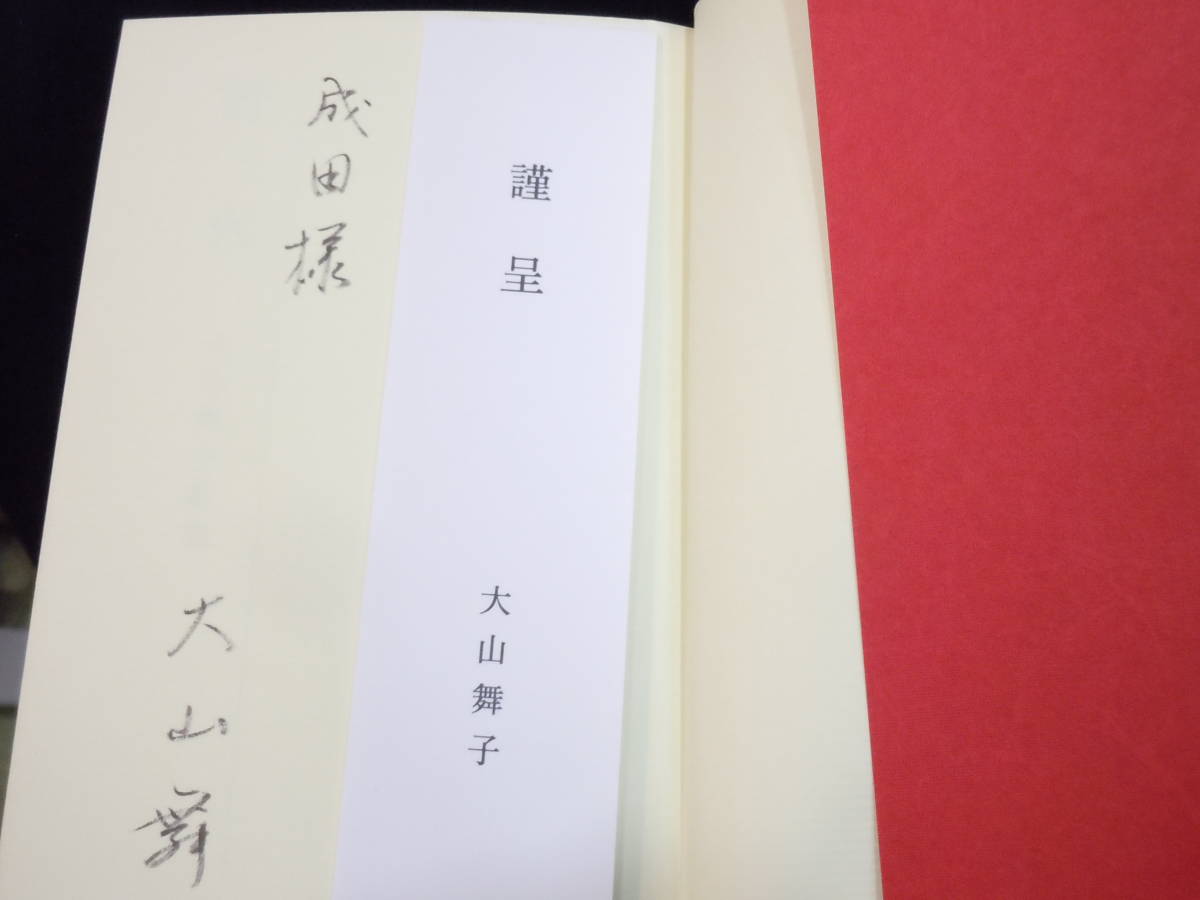 謹呈
大山舞子
成田様
大山舞